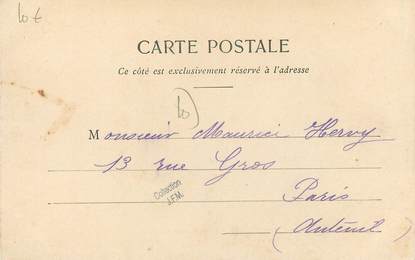 10 €
CARTE POSTALE
Ce côté est exclusivement réservé à l'adresse
10
Monsieur Maurice Hervy
13 rue Gros
Collection
J.F.M.
Paris
(Auteuil)